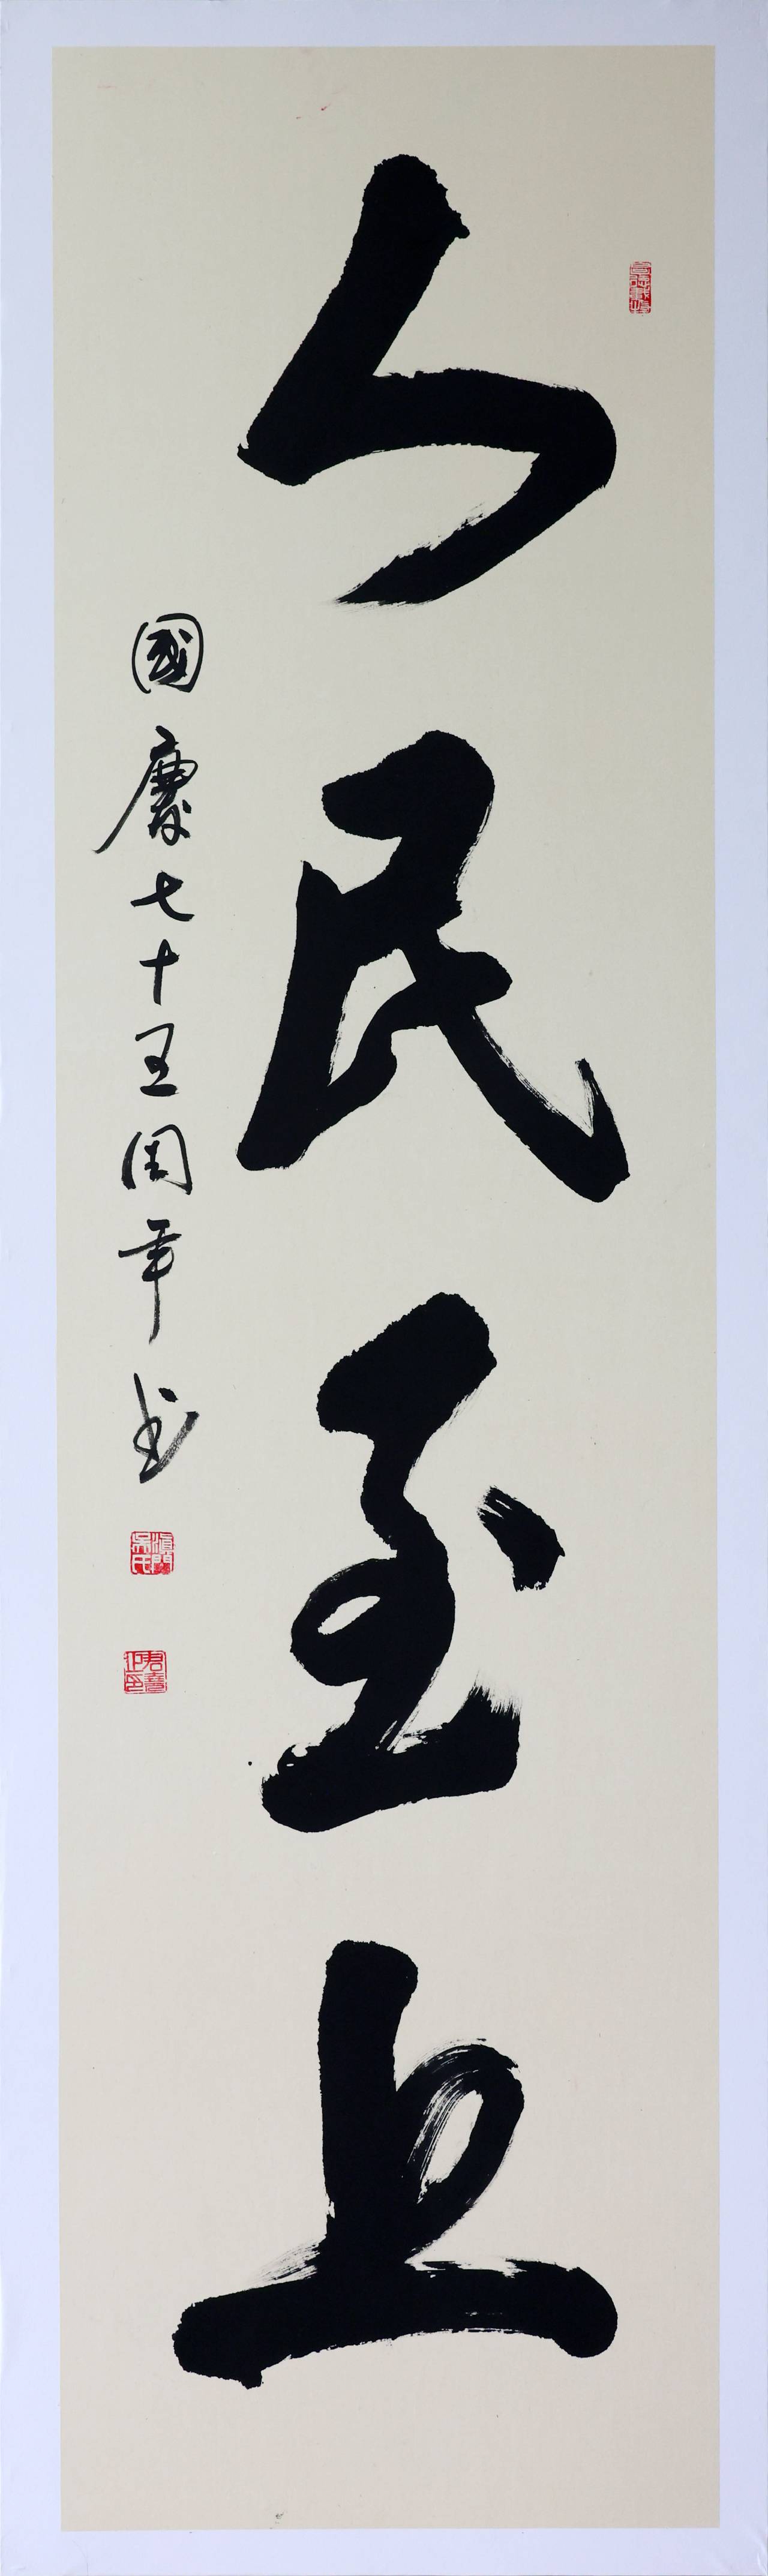 人民至上
國慶七十五周年书